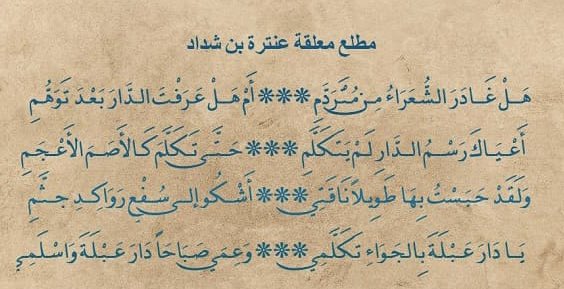 مطلع معلقة عنترة بن شداد
هَلْ غَادَرَ الشُّعَرَاءُ مِن مُتَرَدَّمِ *** أَمْ هَلْ عَرَفْتَ الدَّارَ بَعْدَ تَوَهُّمِ
أَعْيَاكَ رَسْمُ الدَّارِ لَمْ يَتَكَلَّمِ *** حَتَّى تَكَلَّمَ كَالأَصَمِّ الأَعْجَمِ
وَلَقَدْ حَبَسْتُ بِهَا طَوِيلاً نَاقَتِي *** أَشْكُو إلى سُفْعٍ رَوَاكِدِ جُثَّمِ
يَا دَارَ عَبْلَةَ بِالجَوَاءِ تَكَلَّمِي *** وَعِمِي صَبَاحَاً دَارَ عَبْلَةَ وَاسْلَمِي